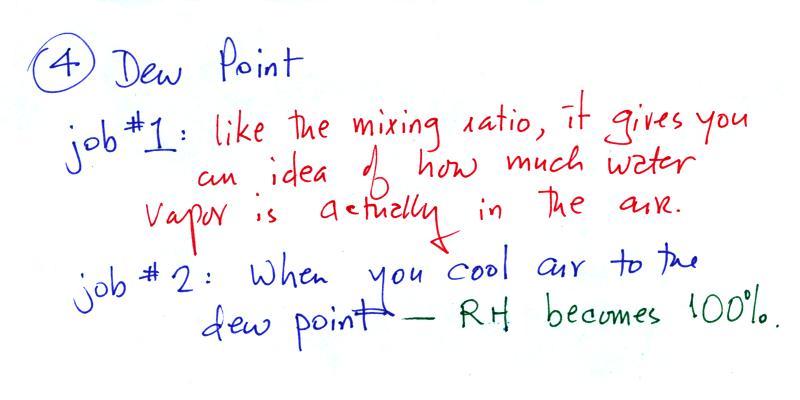 4 Dew Point
job #1: like the mixing ratio, it gives you
an idea of how much water
vapor is actually in the air.
job #2: When you cool air to the
dew point — RH becomes 100%.